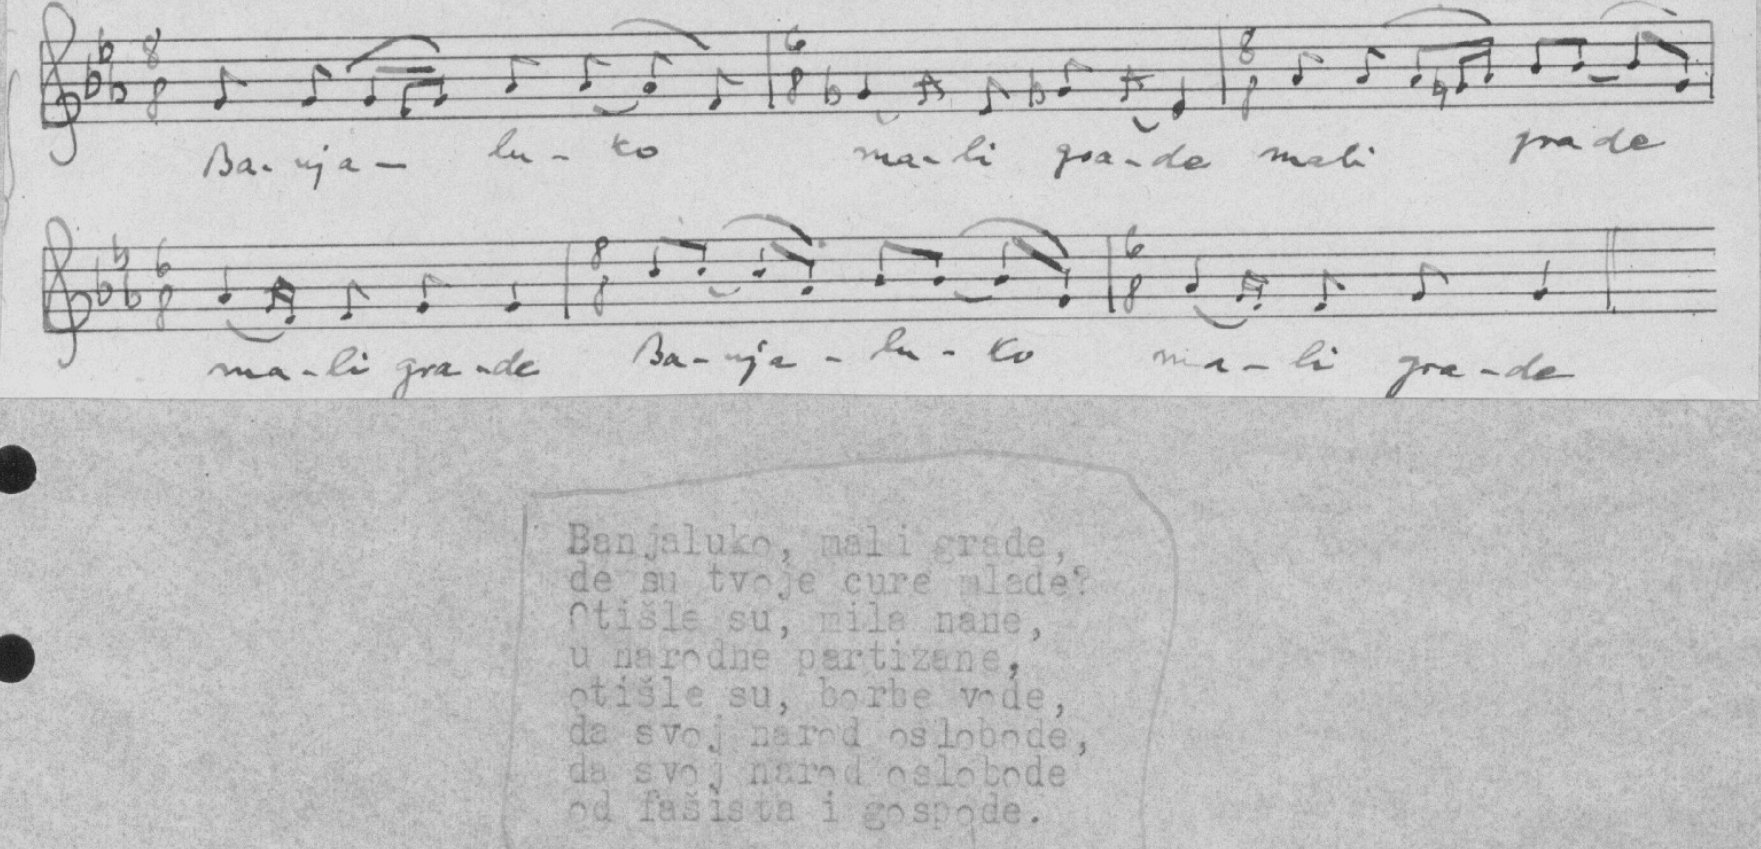 Ba-nja- lu-ko ma-li gra-de mali grade
ma-li gra-de Ba-nja-lu-ko ma-li gra-de
Banjaluko, mali grade,
de su tvoje cure mlade?
Otišle su, mile nane,
u narodne partizane,
otišle su, borbe vode,
da svoj narod oslobode,
da svoj narod oslobode
od fašista i gospode.